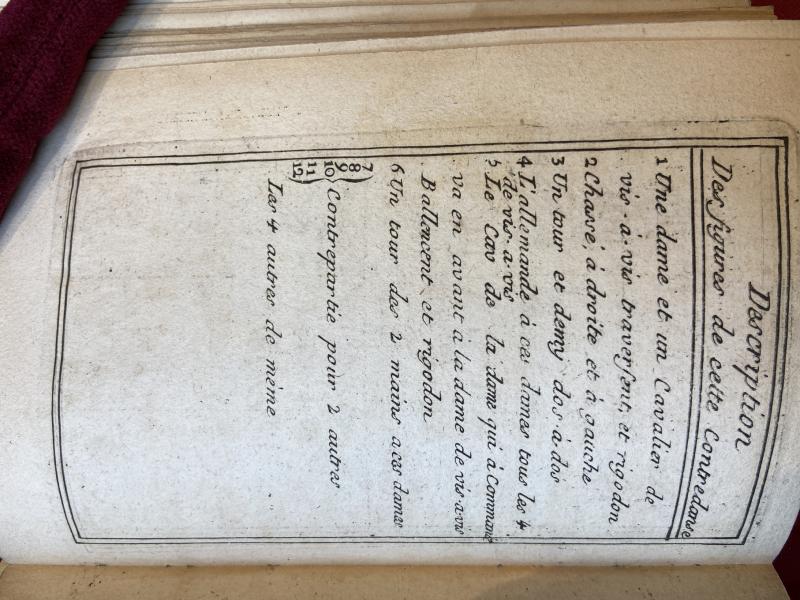 Description
Des figures de cette Contredanse
1 Une dame et un Cavalier de
vis-à-vis traversent, et rigodon
2 Chassé, à droite et à gauche
3 Un tour et demy dos-à-dos
4 L'allemande à ces dames tous les 4
de vis-a-vis
5 Le Cav de la dame qui à Commancé
va en avant à la dame de vis-a-vis
Ballencent et rigodon
6 Un tour des 2 mains a ces dames
7
8
9
10 Contrepartie pour 2 autres
11
12
Les 4 autres de même